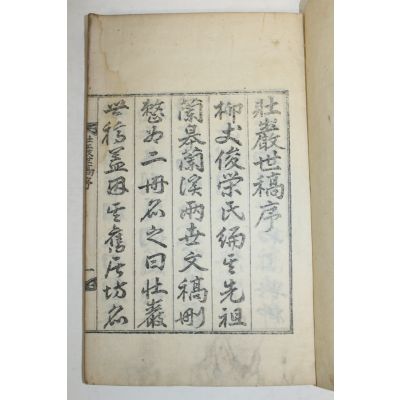 壯巖世稿序
柳丈俊榮氏編其先祖
蘭皐蘭溪兩世文稿刪
整為二冊名之曰壯巖
世稿蓋因其舊居坊名
壯巖世稿序
一